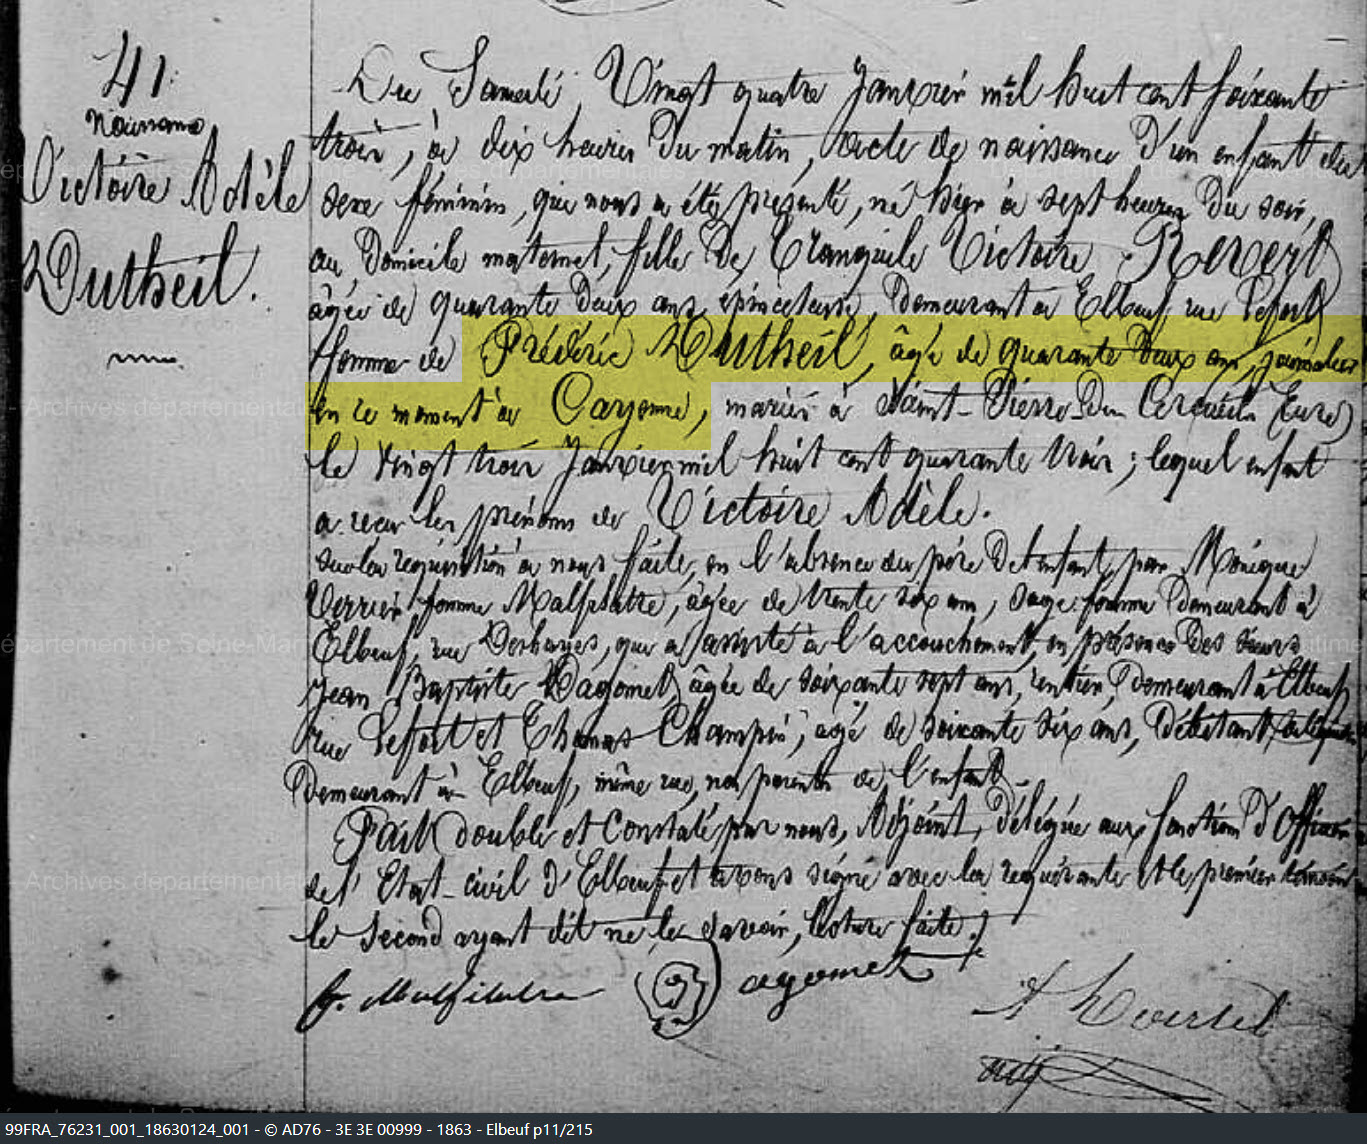 41.
Naissance
Victoire Adèle
Dutheil.
Du Samedi, Vingt quatre Janvier mil huit cent soixante
trois, à dix heures du matin, acte de naissance d'un enfant du
sexe féminin, qui nous a été présenté, né hier à sept heures du soir,
au domicile maternel, fille de Tranquile Victoire Revert
âgée de quarante deux ans, épinceteuse, demeurant à Elbeuf, rue Lefort
femme de Fréderic Dutheil, âgé de quarante deux ans, journalier
en ce moment à Cayenne, mariés à Saint-Pierre-du-Cercueil (Eure)
le vingt trois Janvier mil huit cent quarante trois; lequel enfant
a reçu les prénoms de Victoire Adèle.
Sur la requisition à nous faite, en l'absence du père de l'enfant, par Monique
Verrier femme Malfilatre, âgée de trente six ans, sage femme demeurant à
Elbeuf, rue Deshayes, qui a assisté à l'accouchement, en présence des sieurs
Jean Baptiste Dagomet, âgée de soixante sept ans, rentier demeurant à Elbeuf
rue Lefort et Thomas Champin, âgé de soixante six ans, Débitant
demeurant à Elbeuf, même rue, non parents de l'enfant
Fait double et Constaté par nous, Adjoint, délégué aux fonctions d'Officier
de l'Etat-civil d'Elbeuf et avons signé avec la requérante et le premier témoin
le second ayant dit ne le savoir, lecture faite.
f. Malfilatre Dagomet
adj
Archives départementales
département de Seine-Maritime
99FRA_76231_001_18630124_001 - © AD76 - 3E 3E 00999 - 1863 - Elbeuf p11/215